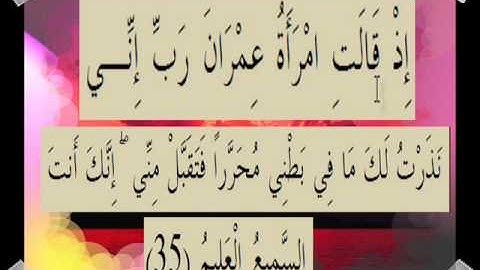 إِذْ قَالَتِ امْرَأَةُ عِمْرَانَ رَبِّ إِنِّـــي
نَذَرْتُ لَكَ مَا فِي بَطْنِي مُحَرَّراً فَتَقَبَّلْ مِنِّي ۖ إِنَّكَ أَنتَ
السَّمِيعُ الْعَلِيمُ (35)